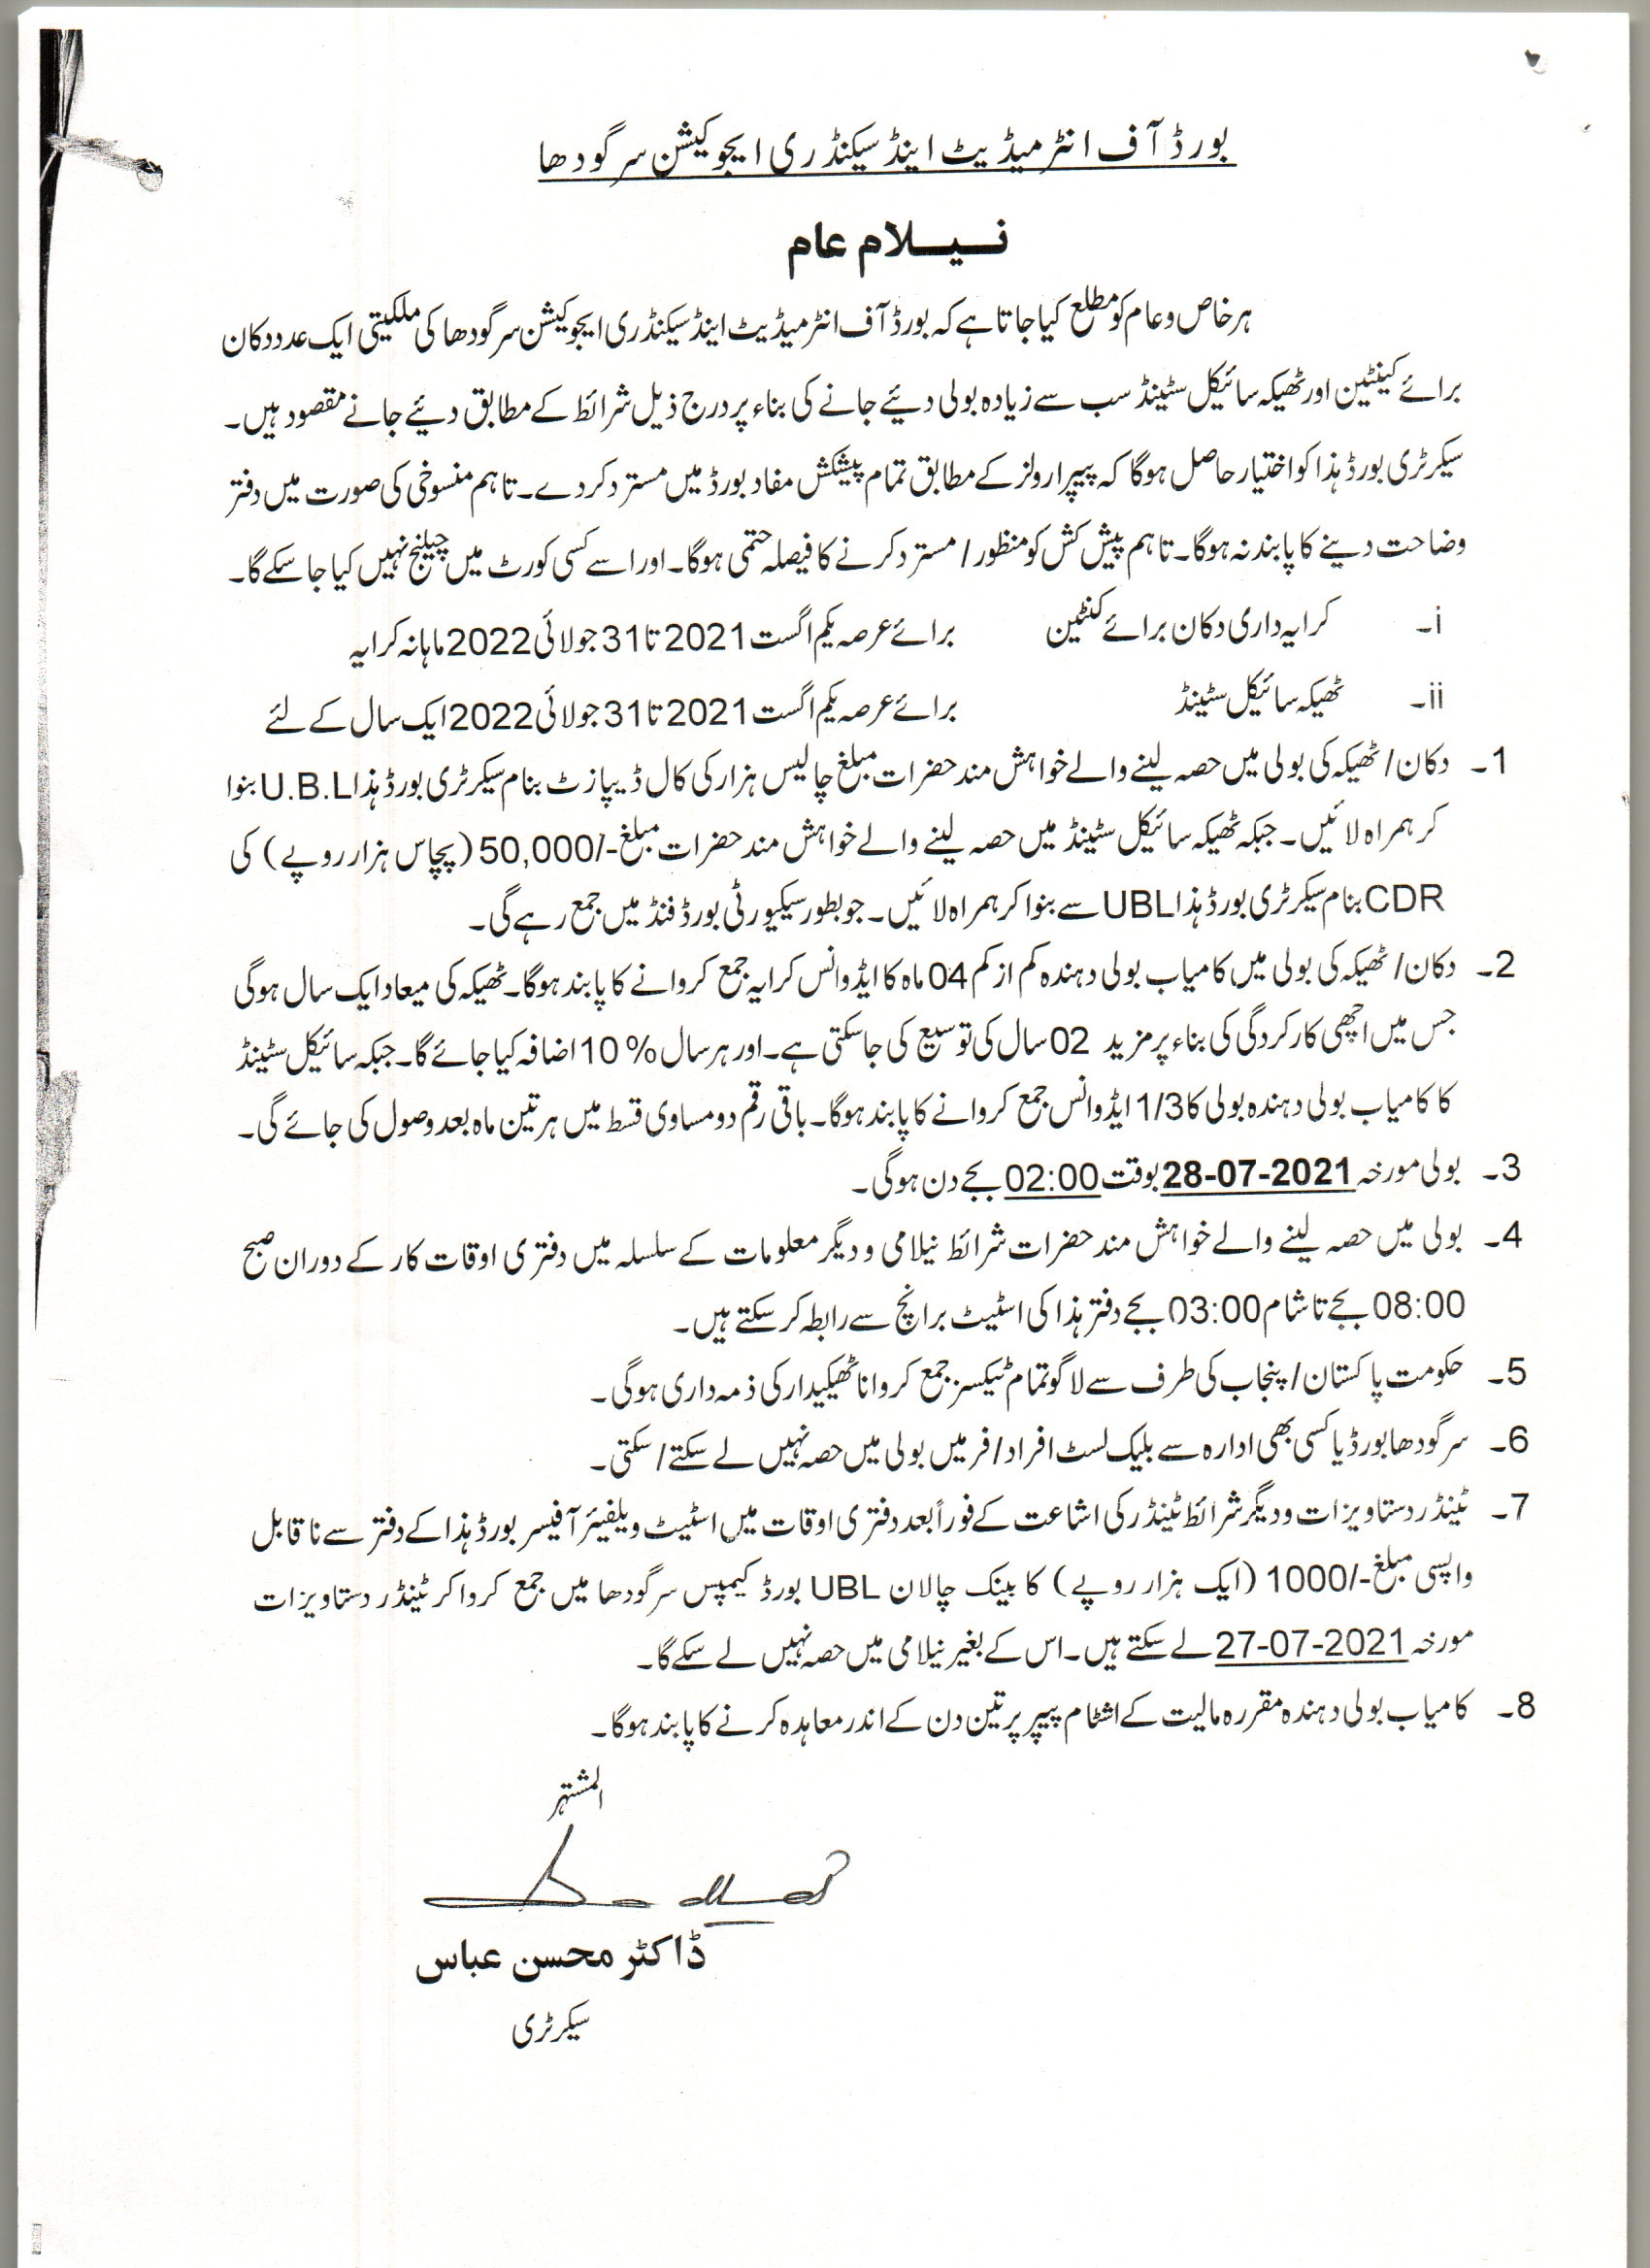 بورڈ آف انٹرمیڈیٹ اینڈ سیکنڈری ایجوکیشن سرگودھا
نیلام عام
ہر خاص و عام کو مطلع کیا جاتا ہے کہ بورڈ آف انٹرمیڈیٹ اینڈ سیکنڈری ایجوکیشن سرگودھا کی ملکیتی ایک عدد دکان
برائے کینٹین اور ٹھیکہ سائیکل سٹینڈ سب سے زیادہ بولی دیئے جانے کی بناء پر درج ذیل شرائط کے مطابق دیئے جانے مقصود ہیں۔
سیکرٹری بورڈ ہذا کو اختیار حاصل ہوگا کہ پیپرا رولز کے مطابق تمام پیشکش مفاد بورڈ میں مسترد کردے۔ تاہم منسوخی کی صورت میں دفتر
وضاحت دینے کا پابند نہ ہوگا۔ تاہم پیش کش کو منظور/ مسترد کرنے کا فیصلہ حتمی ہوگا۔ اور اسے کسی کورٹ میں چیلنج نہیں کیا جا سکے گا۔
i۔ کرایہ داری دکان برائے کنٹین برائے عرصہ یکم اگست 2021 تا 31 جولائی 2022 ماہانہ کرایہ
ii۔ ٹھیکہ سائیکل سٹینڈ برائے عرصہ یکم اگست 2021 تا 31 جولائی 2022 ایک سال کے لئے
1۔ دکان/ ٹھیکہ کی بولی میں حصہ لینے والے خواہش مند حضرات مبلغ چالیس ہزار کی کال ڈیپازٹ بنام سیکرٹری بورڈ ہذا U.B.L بنوا
کر ہمراہ لائیں۔ جبکہ ٹھیکہ سائیکل سٹینڈ میں حصہ لینے والے خواہش مند حضرات مبلغ -/50,000 (پچاس ہزار روپے) کی
CDR بنام سیکرٹری بورڈ ہذا UBL سے بنوا کر ہمراہ لائیں۔ جو بطور سیکیورٹی بورڈ فنڈ میں جمع رہے گی۔
2۔ دکان/ ٹھیکہ کی بولی میں کامیاب بولی دہندہ کم از کم 04 ماہ کا ایڈوانس کرایہ جمع کروانے کا پابند ہوگا۔ ٹھیکہ کی میعاد ایک سال ہوگی
جس میں اچھی کارکردگی کی بناء پر مزید 02 سال کی توسیع کی جاسکتی ہے۔ اور ہر سال % 10 اضافہ کیا جائے گا۔ جبکہ سائیکل سٹینڈ
کا کامیاب بولی دہندہ بولی کا 1/3 ایڈوانس جمع کروانے کا پابند ہوگا۔ باقی رقم دو مساوی قسط میں ہر تین ماہ بعد وصول کی جائے گی۔
3۔ بولی مورخہ 28-07-2021 بوقت 02:00 بجے دن ہوگی۔
4۔ بولی میں حصہ لینے والے خواہش مند حضرات شرائط نیلامی و دیگر معلومات کے سلسلہ میں دفتری اوقات کار کے دوران صبح
08:00 بجے تا شام 03:00 بجے دفتر ہذا کی اسٹیٹ برانچ سے رابطہ کر سکتے ہیں۔
5۔ حکومت پاکستان/ پنجاب کی طرف سے لاگو تمام ٹیکسز جمع کروانا ٹھیکیدار کی ذمہ داری ہوگی۔
6۔ سرگودھا بورڈ یا کسی بھی ادارہ سے بلیک لسٹ افراد/ فرمیں بولی میں حصہ نہیں لے سکتے/ سکتی۔
7۔ ٹینڈر دستاویزات و دیگر شرائط ٹینڈر کی اشاعت کے فوراً بعد دفتری اوقات میں اسٹیٹ ویلفیئر آفیسر بورڈ ہذا کے دفتر سے ناقابل
واپسی مبلغ -/1000 (ایک ہزار روپے) کا بینک چالان UBL بورڈ کیمپس سرگودھا میں جمع کروا کر ٹینڈر دستاویزات
مورخہ 27-07-2021 لے سکتے ہیں۔ اس کے بغیر نیلامی میں حصہ نہیں لے سکے گا۔
8۔ کامیاب بولی دہندہ مقررہ مالیت کے اشٹام پیپر پر تین دن کے اندر معاہدہ کرنے کا پابند ہوگا۔
المشتہر
ڈاکٹر محسن عباس
سیکرٹری